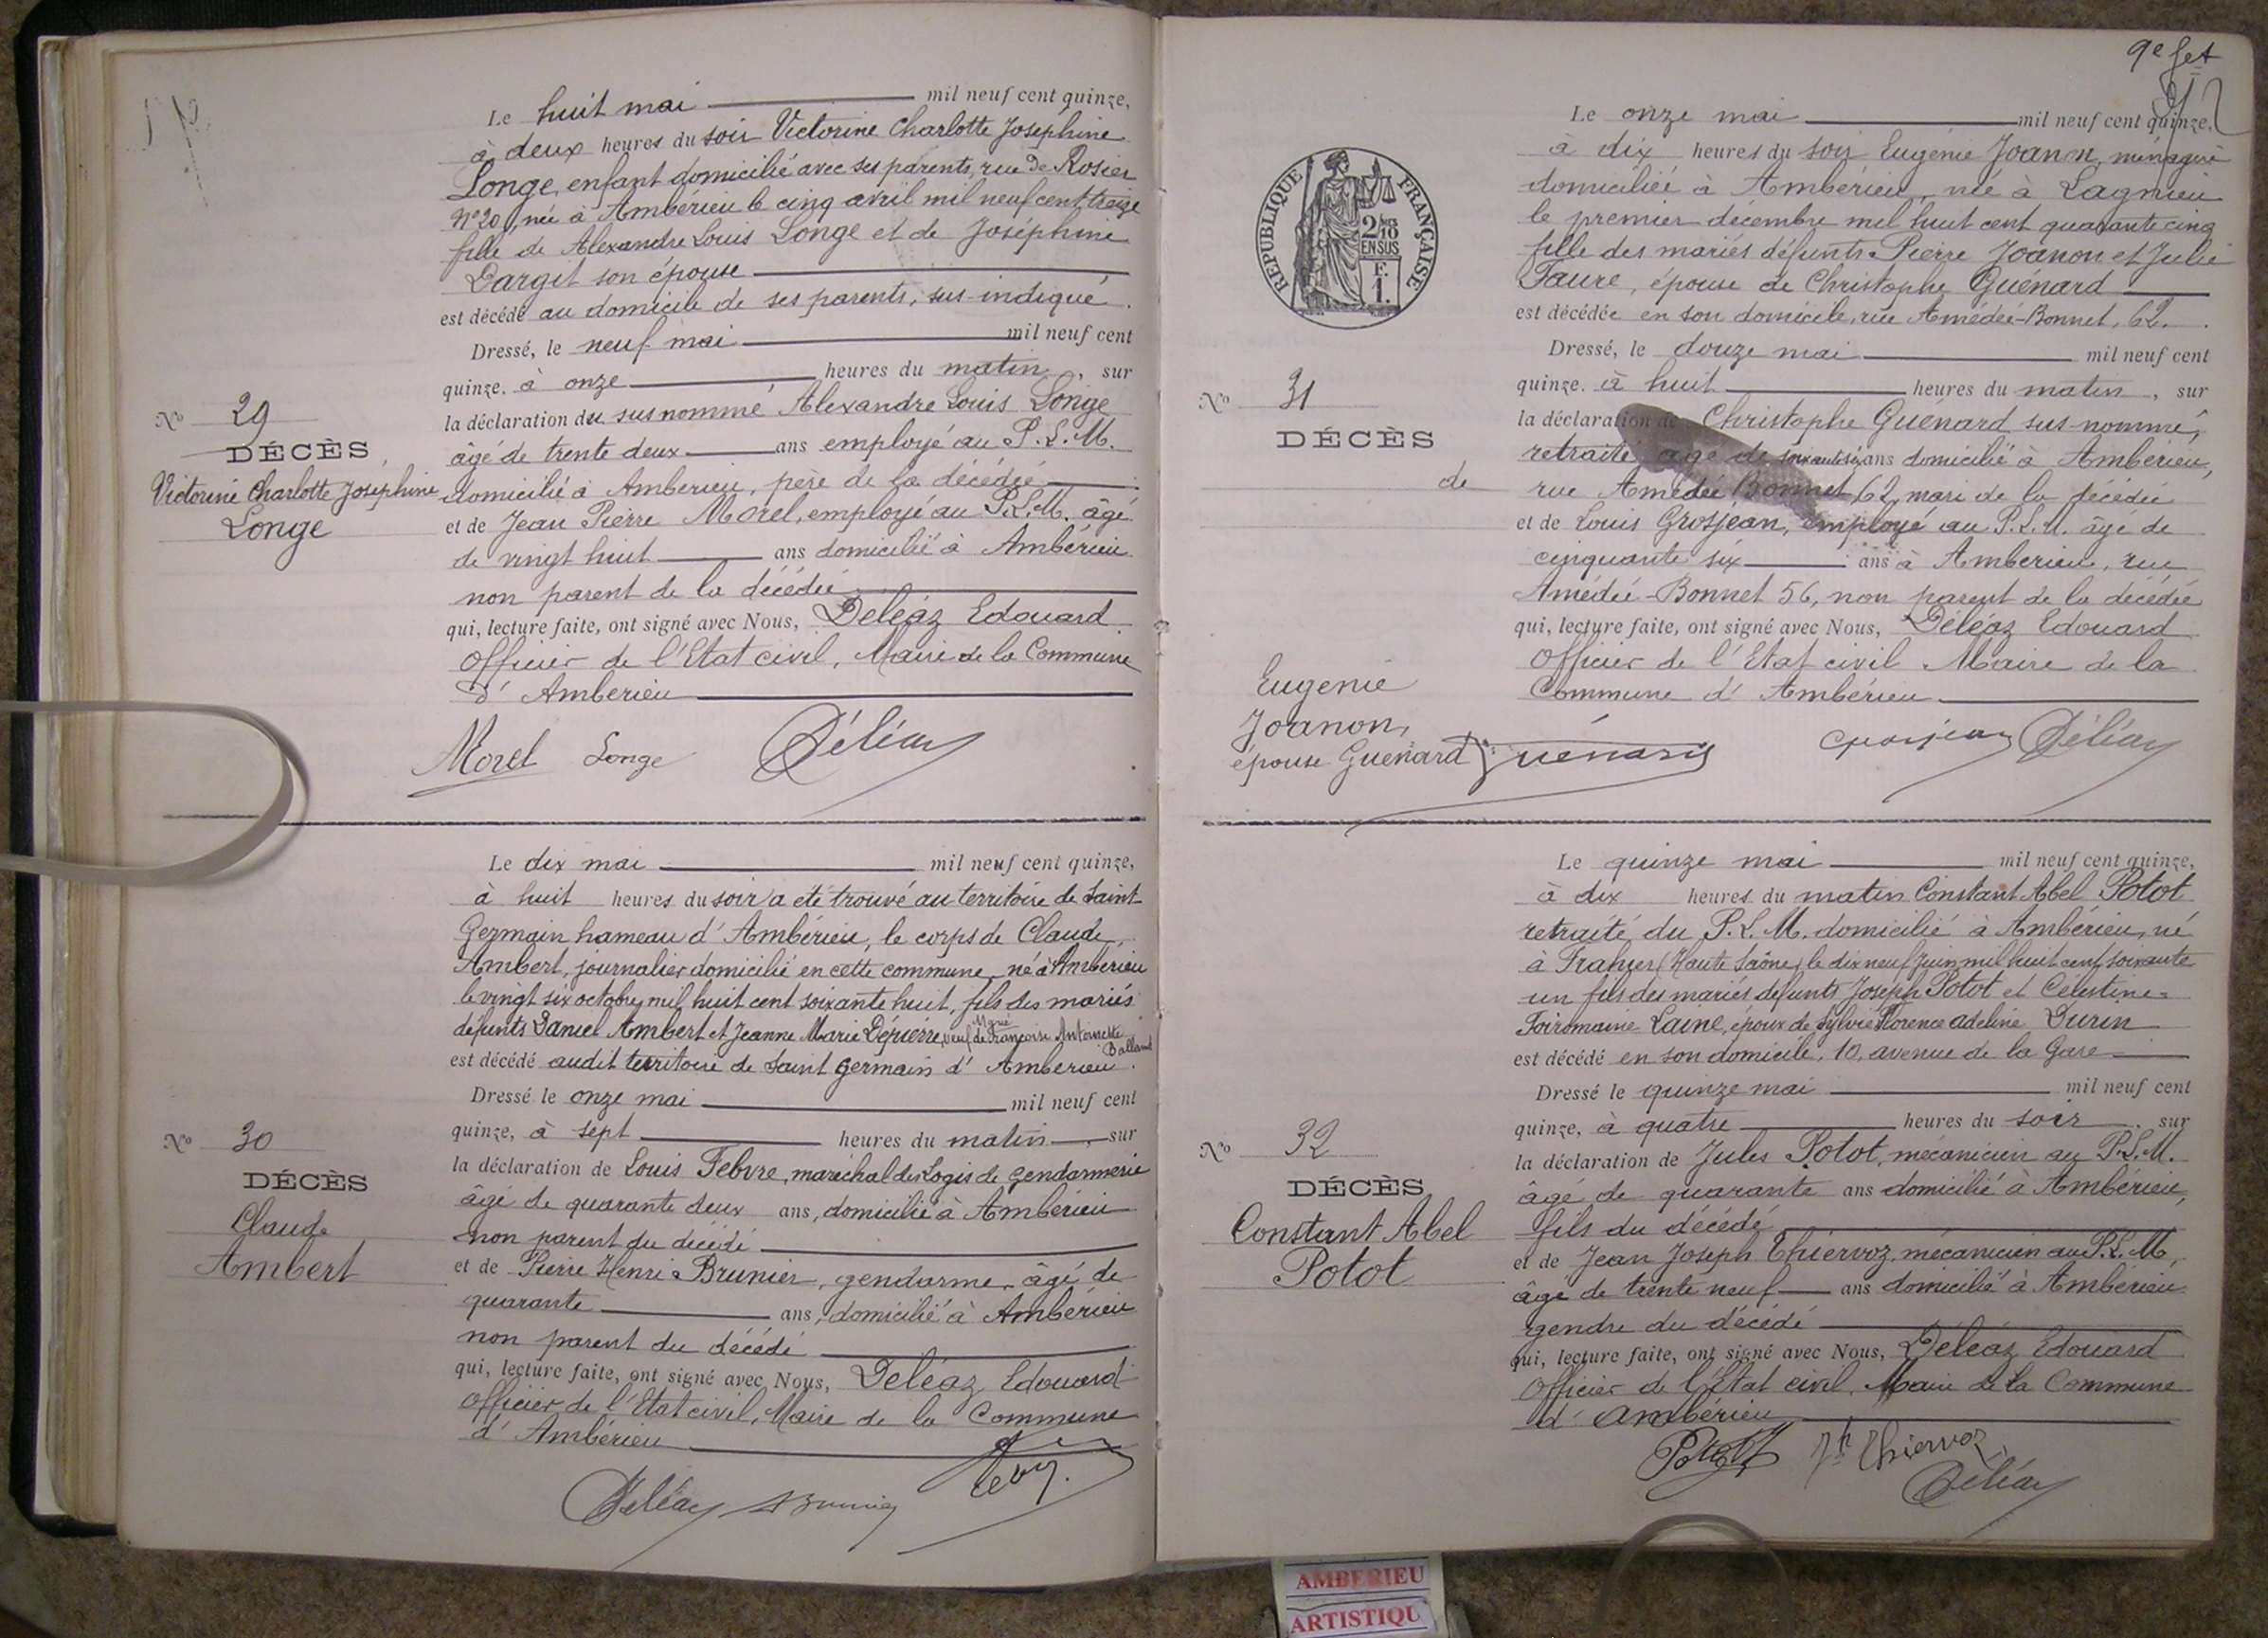 Le huit mai mil neuf cent quinze,
à deux heures du soir Victorine Charlotte Joséphine
Longe, enfant domicilié avec ses parents, rue de Rosier
N° 20, née à Ambérieu le cinq avril mil neuf cent treize
fille de Alexandre Louis Longe et de Joséphine
Darget son épouse
est décédé au domicile de ses parents, sus-indiqué.
Dressé, le neuf mai mil neuf cent
quinze, à onze heures du matin, sur
la déclaration du susnommé Alexandre Louis Longe
âgé de trente deux ans employé au P.L.M.
domicilié à Ambérieu, père de la décédée
et de Jean Pierre Morel, employé au P.L.M. âgé
de vingt huit ans domicilié à Ambérieu
non parent de la décédée
qui, lecture faite, ont signé avec Nous, Déléaz Edouard
Officier de l'Etat civil, Maire de la Commune
d'Ambérieu
Morel Longe Déléaz
N° 29
DÉCÈS
Victorine Charlotte Joséphine
Longe
Le dix mai mil neuf cent quinze,
à huit heures du soir a été trouvé au territoire de Saint
Germain hameau d'Ambérieu, le corps de Claude
Ambert, journalier domicilié en cette commune, né à Ambérieu
le vingt six octobre mil huit cent soixante huit, fils des mariés
défunts Daniel Ambert et Jeanne Marie Dépierre, veuf de Françoise Antoinette
Balland
est décédé audit territoire de Saint Germain d'Ambérieu.
Dressé le onze mai mil neuf cent
quinze, à sept heures du matin, sur
la déclaration de Louis Febvre, maréchal des Logis de gendarmerie
âgé de quarante deux ans, domicilié à Ambérieu
non parent du décédé
et de Pierre Henri Brunier, gendarme, âgé de
quarante ans, domicilié à Ambérieu
non parent du décédé
qui, lecture faite, ont signé avec Nous, Déléaz Edouard
Officier de l'Etat civil, Maire de la Commune
d'Ambérieu
Déléaz Brunier
N° 30
DÉCÈS
Claude
Ambert
9e fet
RÉPUBLIQUE FRANÇAISE
2/10
EN SUS
F.
1.
Le onze mai mil neuf cent quinze,
à dix heures du soir Eugénie Joanon, ménagère
domiciliée à Ambérieu, née à Lagnieu
le premier décembre mil huit cent quarante cinq
fille des mariés défunts Pierre Joanon et Julie
Faure, épouse de Christophe Guénard
est décédée en son domicile, rue Amédée-Bonnet, 62.
Dressé, le douze mai mil neuf cent
quinze, à huit heures du matin, sur
la déclaration de Christophe Guénard sus nommé,
retraité âgé de ans domicilié à Ambérieu,
rue Amédée Bonnet 62, mari de la décédée
et de Louis Grosjean, employé au P.L.M. âgé de
cinquante six ans à Ambérieu, rue
Amédée-Bonnet 56, non parent de la décédée
qui, lecture faite, ont signé avec Nous, Déléaz Edouard
Officier de l'Etat civil Maire de la
Commune d'Ambérieu
Guénard Grosjean Déléaz
N° 31
DÉCÈS
de
Eugénie
Joanon,
épouse Guénard
Le quinze mai mil neuf cent quinze,
à dix heures du matin Constant Abel Potot
retraité du P.L.M. domicilié à Ambérieu, né
à Frahier (Haute Saône) le dix neuf juin mil huit cent soixante
un fils des mariés défunts Joseph Potot et Célestine
Laine, époux de Sylvie Florence Adeline Durin
est décédé en son domicile, 10, avenue de la Gare
Dressé le quinze mai mil neuf cent
quinze, à quatre heures du soir, sur
la déclaration de Jules Potot, mécanicien au P.L.M.
âgé de quarante ans domicilié à Ambérieu,
fils du décédé
et de Jean Joseph Thiervoz, mécanicien au P.L.M,
âgé de trente neuf ans domicilié à Ambérieu
gendre du décédé
qui, lecture faite, ont signé avec Nous, Déléaz Edouard
Officier de l'Etat civil, Maire de la Commune
d'Ambérieu
Potot Jh Thiervoz
Déléaz
N° 32
DÉCÈS
Constant Abel
Potot
AMBERIEU
ARTISTIQU